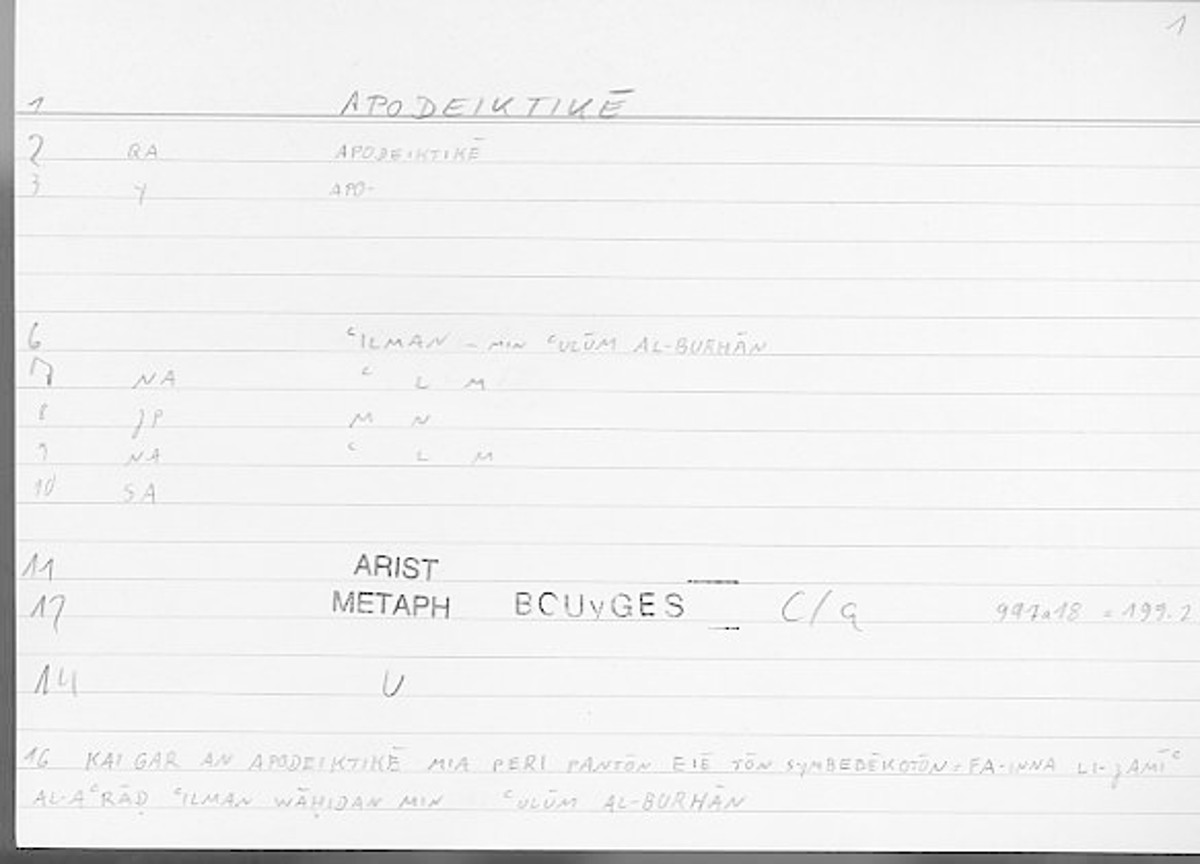 1
1 APODEIKTIKĒ
2 QA APODEIKTIKĒ
3 y APO-
6 ͨILMAN - MIN ͨULŪM AL-BURHĀN
7 NA ͨ L M
8 JP M N
9 NA ͨ L M
10 SA
11 ARIST
12 METAPH BOUyGES C/q 997a18 = 199.2
14 U
16 KAI GAR AN APODEIKTIKĒ MIA PERI PANTŌN EIĒ TŌN SyMBEBĒKOTŌN = FA-INNA LI-JAMĪͨ
AL-AͨRĀḌ ͨILMAN WĀḤIDAN MIN ͨULŪM AL-BURHĀN